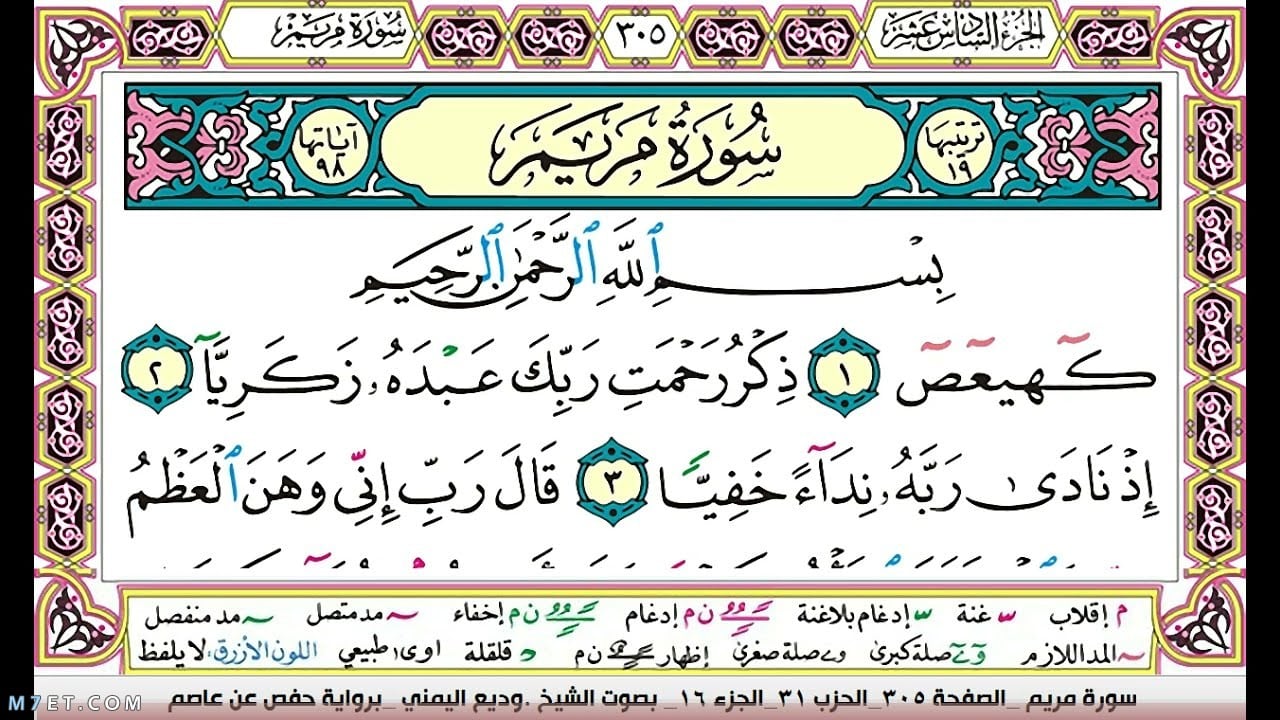 الجزء السادس عشر ٣٠٥ سورة مريم
ترتيبها ١٩ سُورَةُ مَرْيَمَ آياتها ٩٨
بِسْمِ ٱللَّهِ ٱلرَّحْمَٰنِ ٱلرَّحِيمِ
كٓهيعٓصٓ ١ ذِكْرُ رَحْمَتِ رَبِّكَ عَبْدَهُۥ زَكَرِيَّآ ٢
إِذْ نَادَىٰ رَبَّهُۥ نِدَآءً خَفِيًّا ٣ قَالَ رَبِّ إِنِّى وَهَنَ ٱلْعَظْمُ
م إقلاب غنة إدغام بلاغنة ن م إدغام ن م إخفاء مد متصل مد منفصل
المد اللازم صلة كبرى صلة صغرى إظهار ن م قلقلة اوى طبيعي اللون الأزرق: لا يلفظ
سورة مريم _الصفحة ٣٠٥_الحزب ٣١_الجزء ١٦_ بصوت الشيخ .وديع اليمني _برواية حفص عن عاصم
M7ET.COM